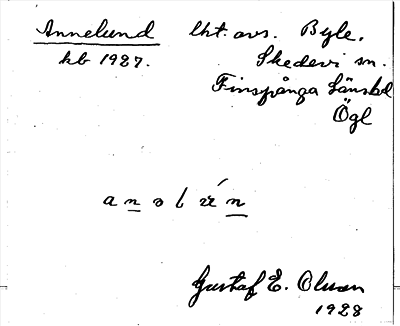 Annelund lht. avs. Byle.
kb 1927. Skedevi sn.
Finspånga länsbd
Ögl
Gustaf E. Olsson
1928